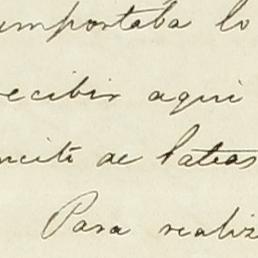 importaba lo
recibir aqui
de
Para realiz